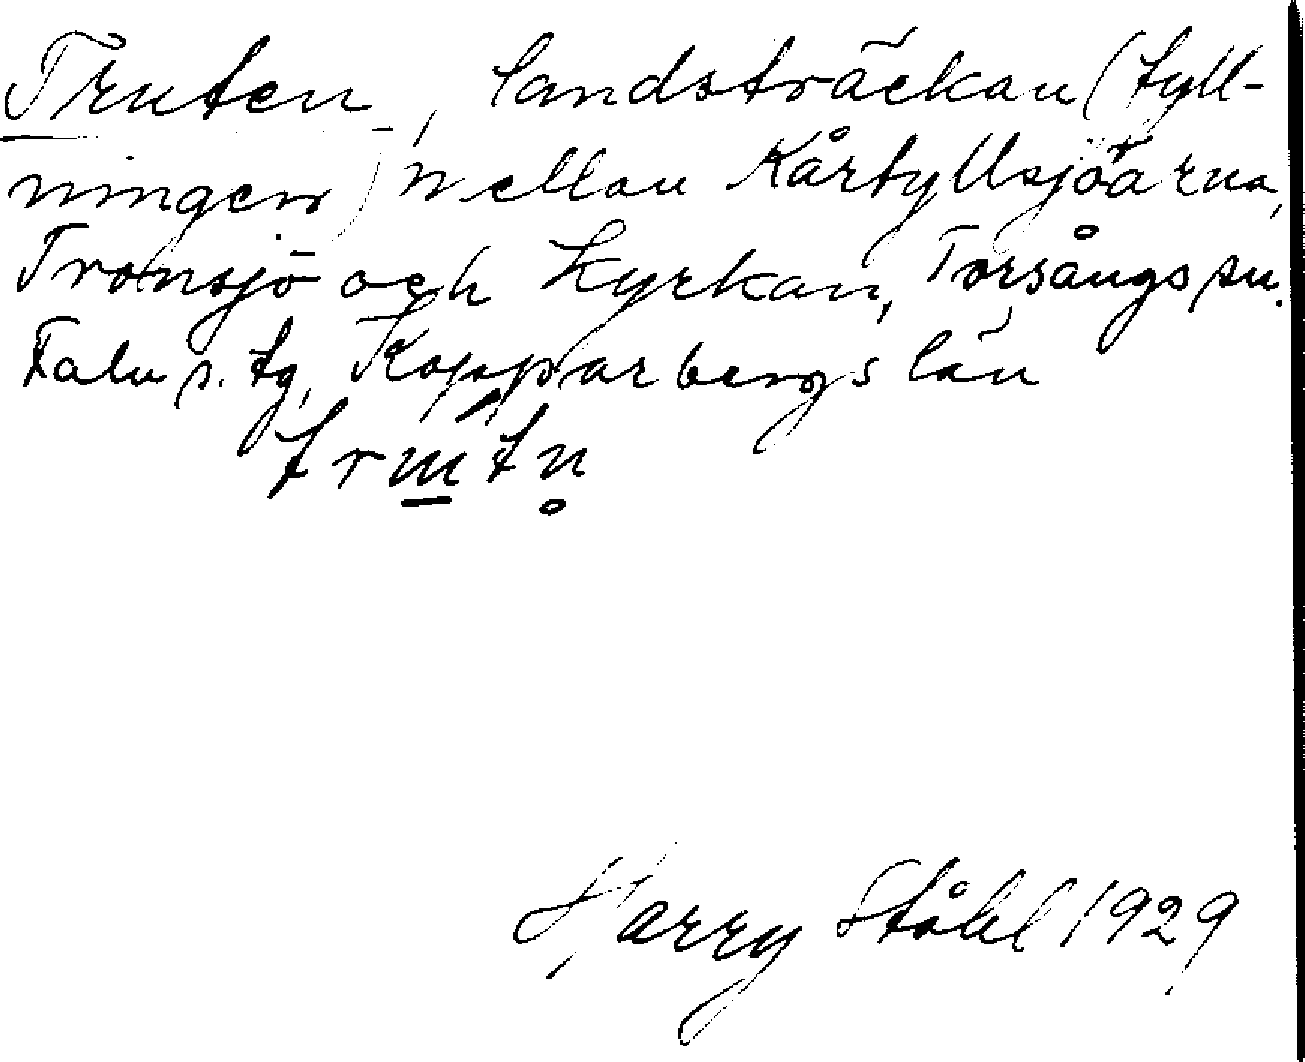 Truten, landsträckan (fyll-
ningen) mellan Kårtyllsjöarna,
Tronsjö och Kyrkan, Torsångs sn.
Falu s. tg, Kopparbergs län
Harry Ståhl 1929